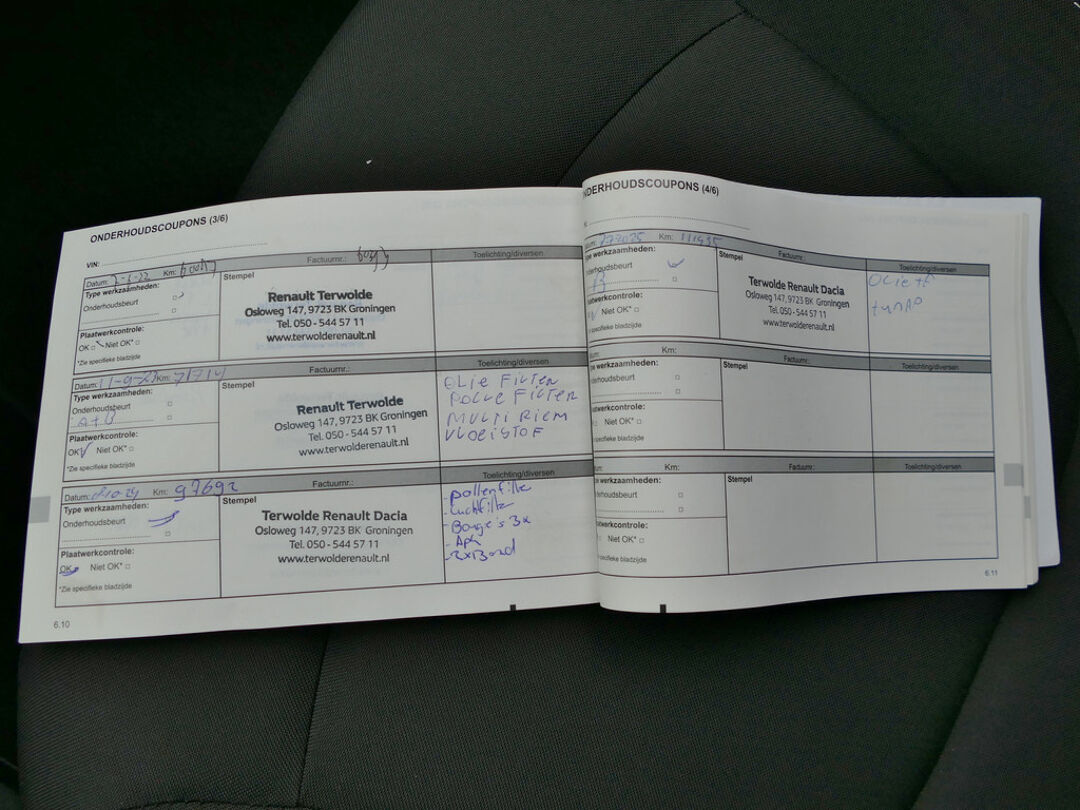 ONDERHOUDSCOUPONS (3/6)
VIN:
Datum: 2-6-22 Km:
Factuurnr.:
Toelichting/diversen
Type werkzaamheden:
Onderhoudsbeurt
Plaatwerkcontrole:
OK Niet OK*
*Zie specifieke bladzijde
Stempel
Renault Terwolde
Osloweg 147, 9723 BK Groningen
Tel. 050 - 544 57 11
www.terwolderenault.nl
Datum: 11-9-23 Km: 71714
Factuurnr.:
Toelichting/diversen
Type werkzaamheden:
Onderhoudsbeurt
A+B
Plaatwerkcontrole:
OK Niet OK*
*Zie specifieke bladzijde
Stempel
Renault Terwolde
Osloweg 147, 9723 BK Groningen
Tel. 050 - 544 57 11
www.terwolderenault.nl
OLIE FILTER
POLLE FILTER
MULTI RIEM
VLOEISTOF
Datum: Km: 97692
Factuurnr.:
Toelichting/diversen
Type werkzaamheden:
Onderhoudsbeurt
Plaatwerkcontrole:
OK Niet OK*
*Zie specifieke bladzijde
Stempel
Terwolde Renault Dacia
Osloweg 147, 9723 BK Groningen
Tel. 050 - 544 57 11
www.terwolderenault.nl
- pollenfilter
- Luchtfilter
- Bougie's 3x
- Apk
- 2x Band
6.10
ONDERHOUDSCOUPONS (4/6)
Km:
Factuurnr.:
Toelichting/diversen
Type werkzaamheden:
Onderhoudsbeurt
Plaatwerkcontrole:
Niet OK*
*Zie specifieke bladzijde
Stempel
Terwolde Renault Dacia
Osloweg 147, 9723 BK Groningen
Tel. 050 - 544 57 11
www.terwolderenault.nl
Datum: Km:
Factuurnr.:
Toelichting/diversen
Type werkzaamheden:
Onderhoudsbeurt
Plaatwerkcontrole:
Niet OK*
*Zie specifieke bladzijde
Stempel
Datum: Km:
Factuurnr.:
Toelichting/diversen
Type werkzaamheden:
Onderhoudsbeurt
Plaatwerkcontrole:
Niet OK*
*Zie specifieke bladzijde
Stempel
6.11